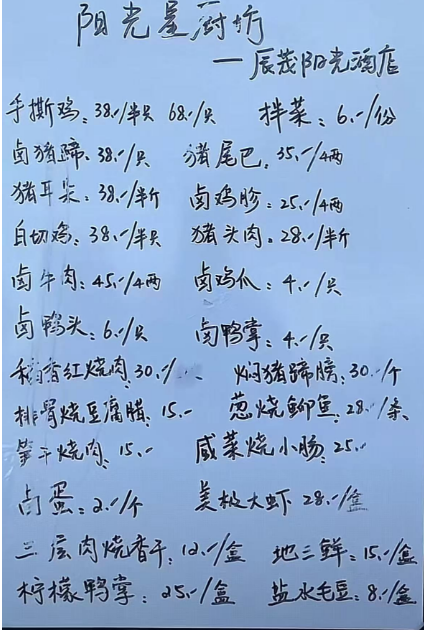 阳光星厨坊
一辰茂阳光酒店
手撕鸡：38.-/半只 68.-/只 拌菜：6.-/份
卤猪蹄：38.-/只 猪尾巴：35.-/4两
猪耳朵：38.-/半斤 卤鸡胗：25.-/4两
白切鸡：38.-/半只 猪头肉：28.-/半斤
卤牛肉：45.-/4两 卤鸡爪：4.-/只
卤鸭头：6.-/只 卤鸭掌：4.-/只
稻香红烧肉：30.-/ 焖猪蹄膀：30.-/个
排骨烧豆腐腊：15.- 葱烧鲫鱼：28.-/条
笋干烧肉：15.- 咸菜烧小肠：25.-
卤蛋：2.-/个 美极大虾 28.-/盒
三层肉烧香干：12.-/盒 地三鲜：15.-/盒
柠檬鸭掌：25.-/盒 盐水毛豆：8.-/盒